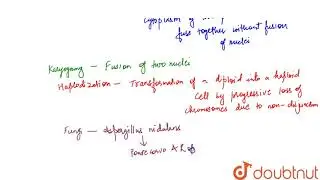 cytoplasm of
fuse together without fusion
of nuclei
Karyogamy — Fusion of two nuclei
Haploidization — Transformation of a diploid into a haploid
cell by progressive loss of
chromosomes due to non-disjunction
Fungi — Aspergillus nidulans
↓
Pontecorvo & Rop
doubtnut